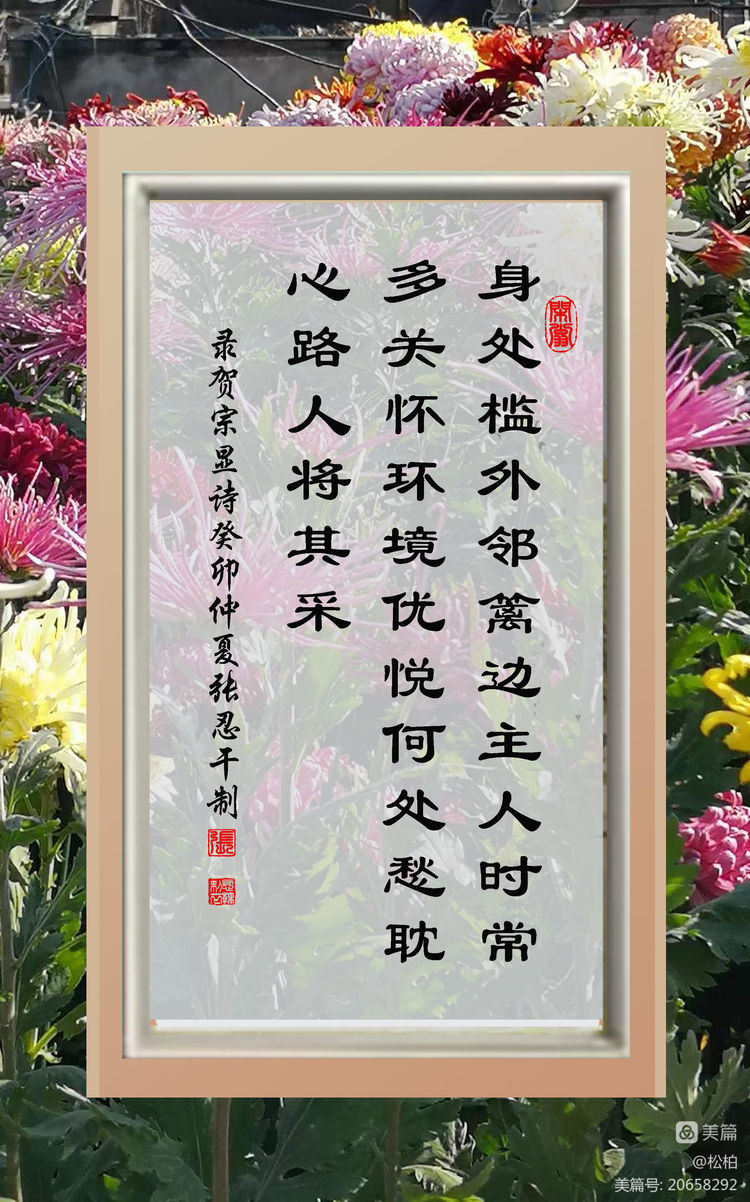 身处槛外邻篱边主人时常
多关怀环境优悦何处愁耽
心路人将其采
录贺宗显诗癸卯仲夏张忍干制
張
美篇
@松柏
美篇号: 20658292